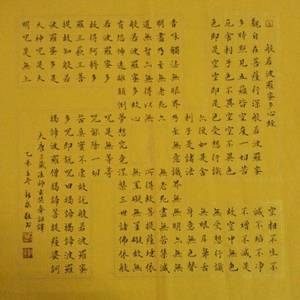 般若波羅蜜多心經
觀自在菩薩行深般若波羅蜜
多時照見五蘊皆空度一切苦
厄舍利子色不異空空不異色
色即是空空即是色受想行識
亦復如是舍
利子是諸法
空相不生不
滅不垢不淨
不增不減是
故空中無色
無受想行識
無眼耳鼻舌
身意無色聲
香味觸法無眼界乃至無意識界無無明亦無無
明盡乃至無老死亦無老死盡無苦集滅
道無智亦無得以無所得故菩提薩埵依
般若波羅蜜多故心無罣礙無罣礙故無
有恐怖遠離顛倒夢想究竟涅槃三世諸佛依般若波羅蜜多
故得阿耨多
羅三藐三菩
提故知般若
波羅蜜多是
大神咒是大
明咒是無上
咒能除一切
苦真實不虛故說般若波羅蜜
多咒即說咒曰揭諦揭諦波羅
揭諦波羅僧揭諦菩提薩婆訶
大唐三藏法師玄奘奉詔譯